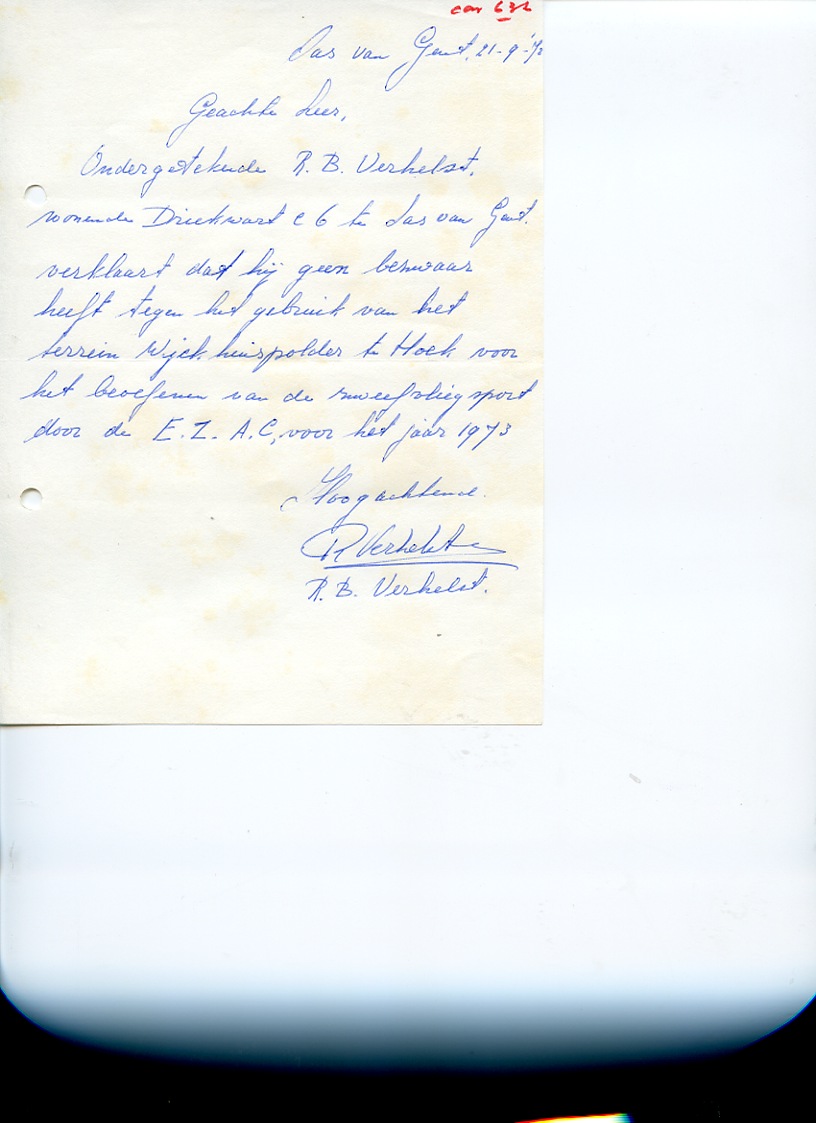 632
Sas van Gent, 21-9-'72
Geachte Heer,
Ondergetekende R. B. Verhelst,
wonende Driekwart C 6 te Sas van Gent.
verklaart dat hij geen bezwaar
heeft tegen het gebruik van het
terrein Wijckhuispolder te Hoek voor
het beoefenen van de zweefvliegsport
door de E. Z. A. C, voor het jaar 1973
Hoogachtend.
R Verhelst
R. B. Verhelst.